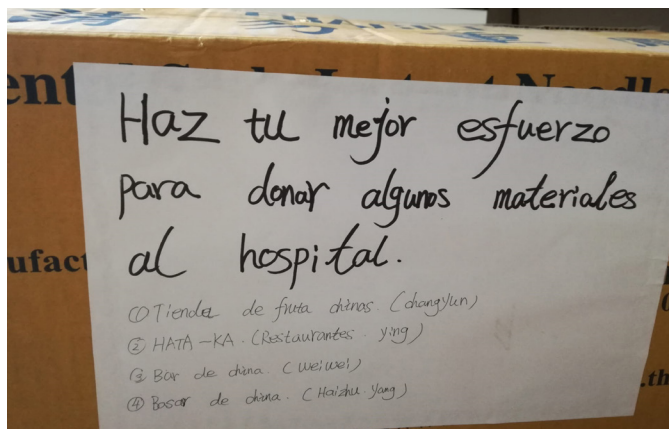 Instant Noodle
ufact
Haz tu mejor esfuerzo
para donar algunos materiales
al hospital.
① Tienda de fruta chinas. (changyun)
② HATA-KA. (Restaurantes. ying)
③ Bar de china. (weiwei)
④ Bosar de china. (Haizhu Yang)
.th